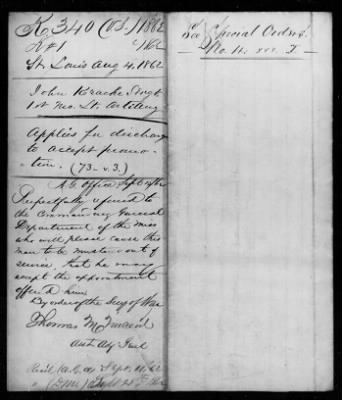 K 340 (V.S.) 1862
St. Louis Aug 4. 1862
John Kracke Sergt
1st Mo. Lt. Artillery
Applies for discharge
to accept promo-
tion. (73-v.3.)
A.G. Office Sept
Respectfully referred to
the Commanding General
Department of the Miss
who will please cause this
man to be mustered out of
service, that he may
accept the appointment
offered him
By order of the Secy of War
Thomas M Vincent
Asst Adj Genl
Recd (A.G.O.) Sept. 11, 62
See Special Orders
No. 11.